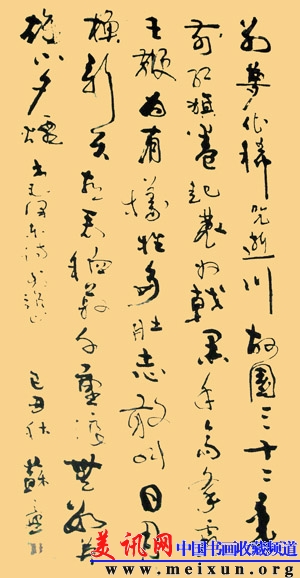 别梦依稀咒逝川故园三十二年
前红旗卷起农奴戟黑手高悬霸
主鞭为有牺牲多壮志敢叫日月
换新天喜看稻菽千重浪遍地英
雄下夕烟 书毛泽东诗到韶山
己丑秋 苏
美讯网 中国书画收藏频道
www.meixun.org